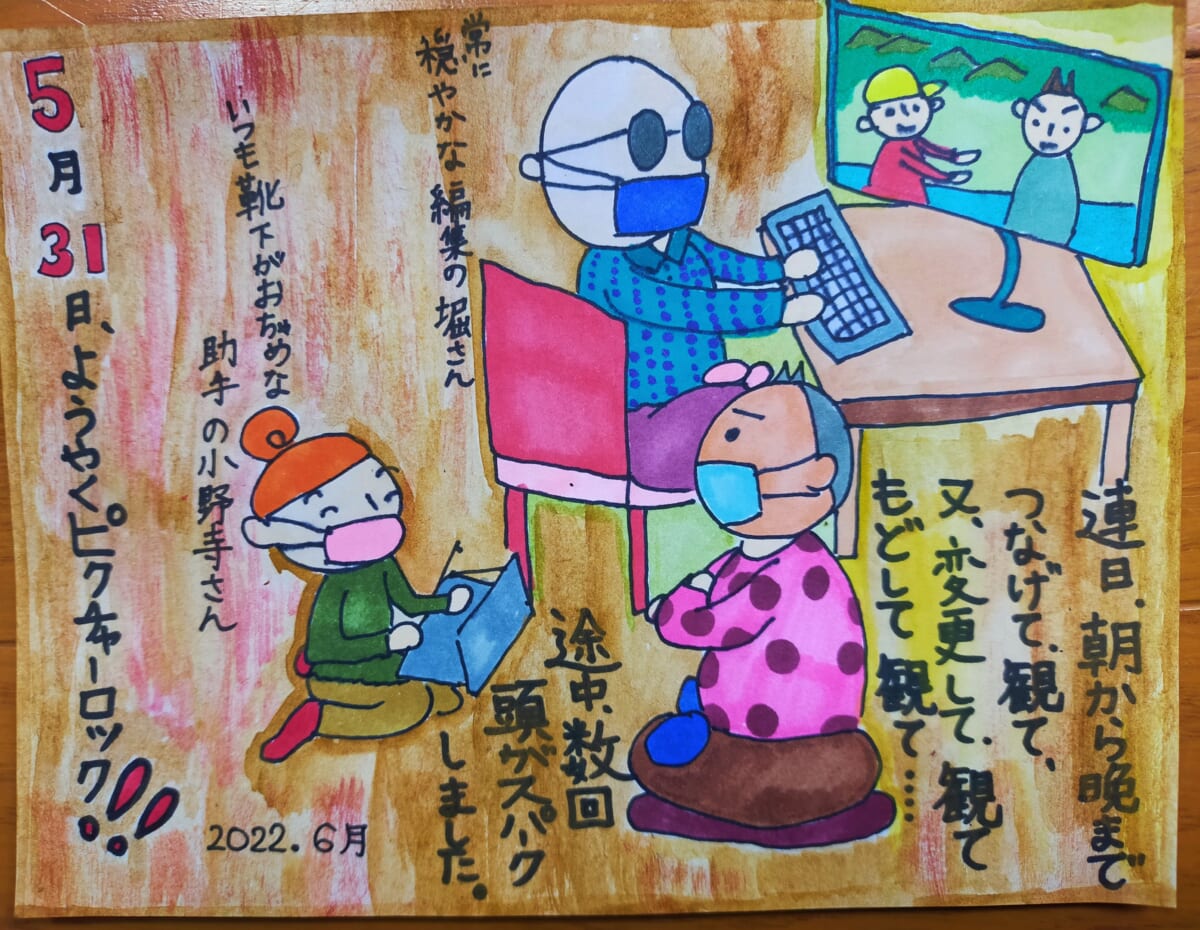 連日、朝から晩まで
つなげて、観て、
又、変更して、観て
もどして観て……
途中、数回
頭がスパーク
しました。
常に
穏やかな編集の堀さん
いつも靴下がおちゃめな
助手の小野寺さん
5月31日、ようやくピクチャーロック!!
2022.6月